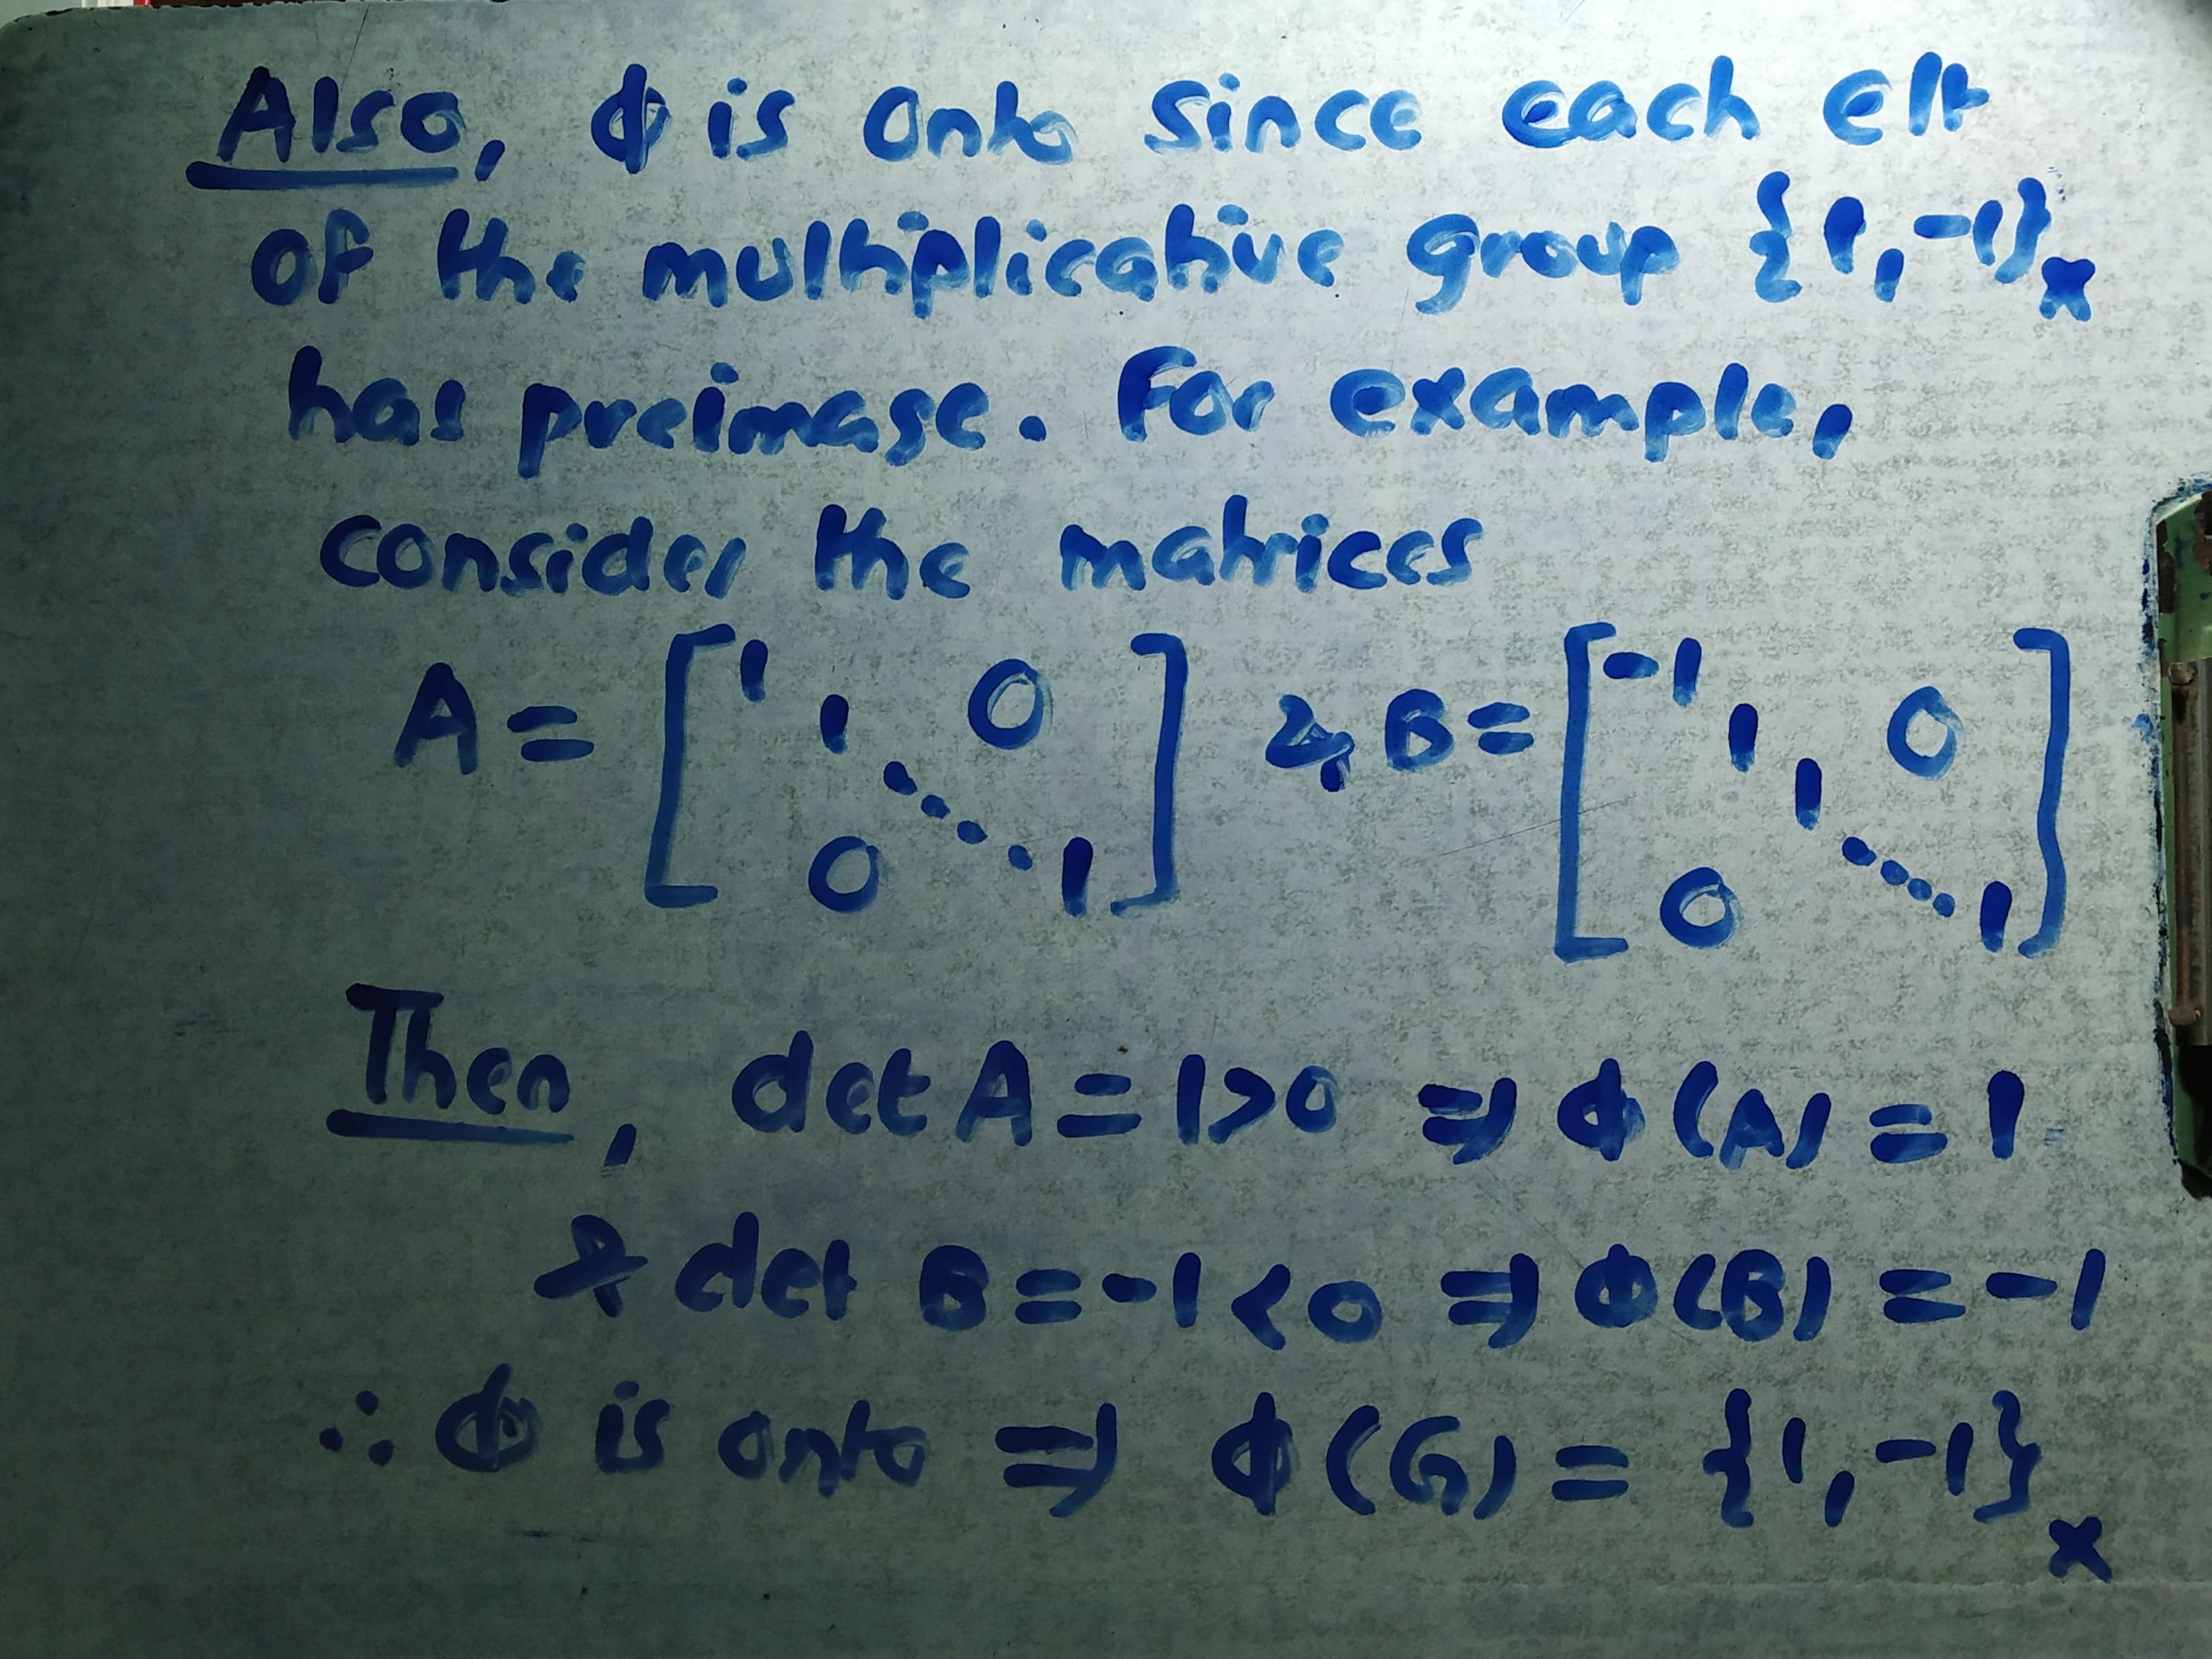 Also, ϕ is onto since each elt
of the multiplicative group {1, -1}ₓ
has preimage. For example,
consider the matrices
A = [1 1 0 ⋱ 0 1] & B = [-1 1 0 1 ⋱ 0 1]
Then, det A = 1 > 0 ⇒ ϕ(A) = 1
& det B = -1 < 0 ⇒ ϕ(B) = -1
∴ ϕ is onto ⇒ ϕ(G) = {1, -1}ₓ